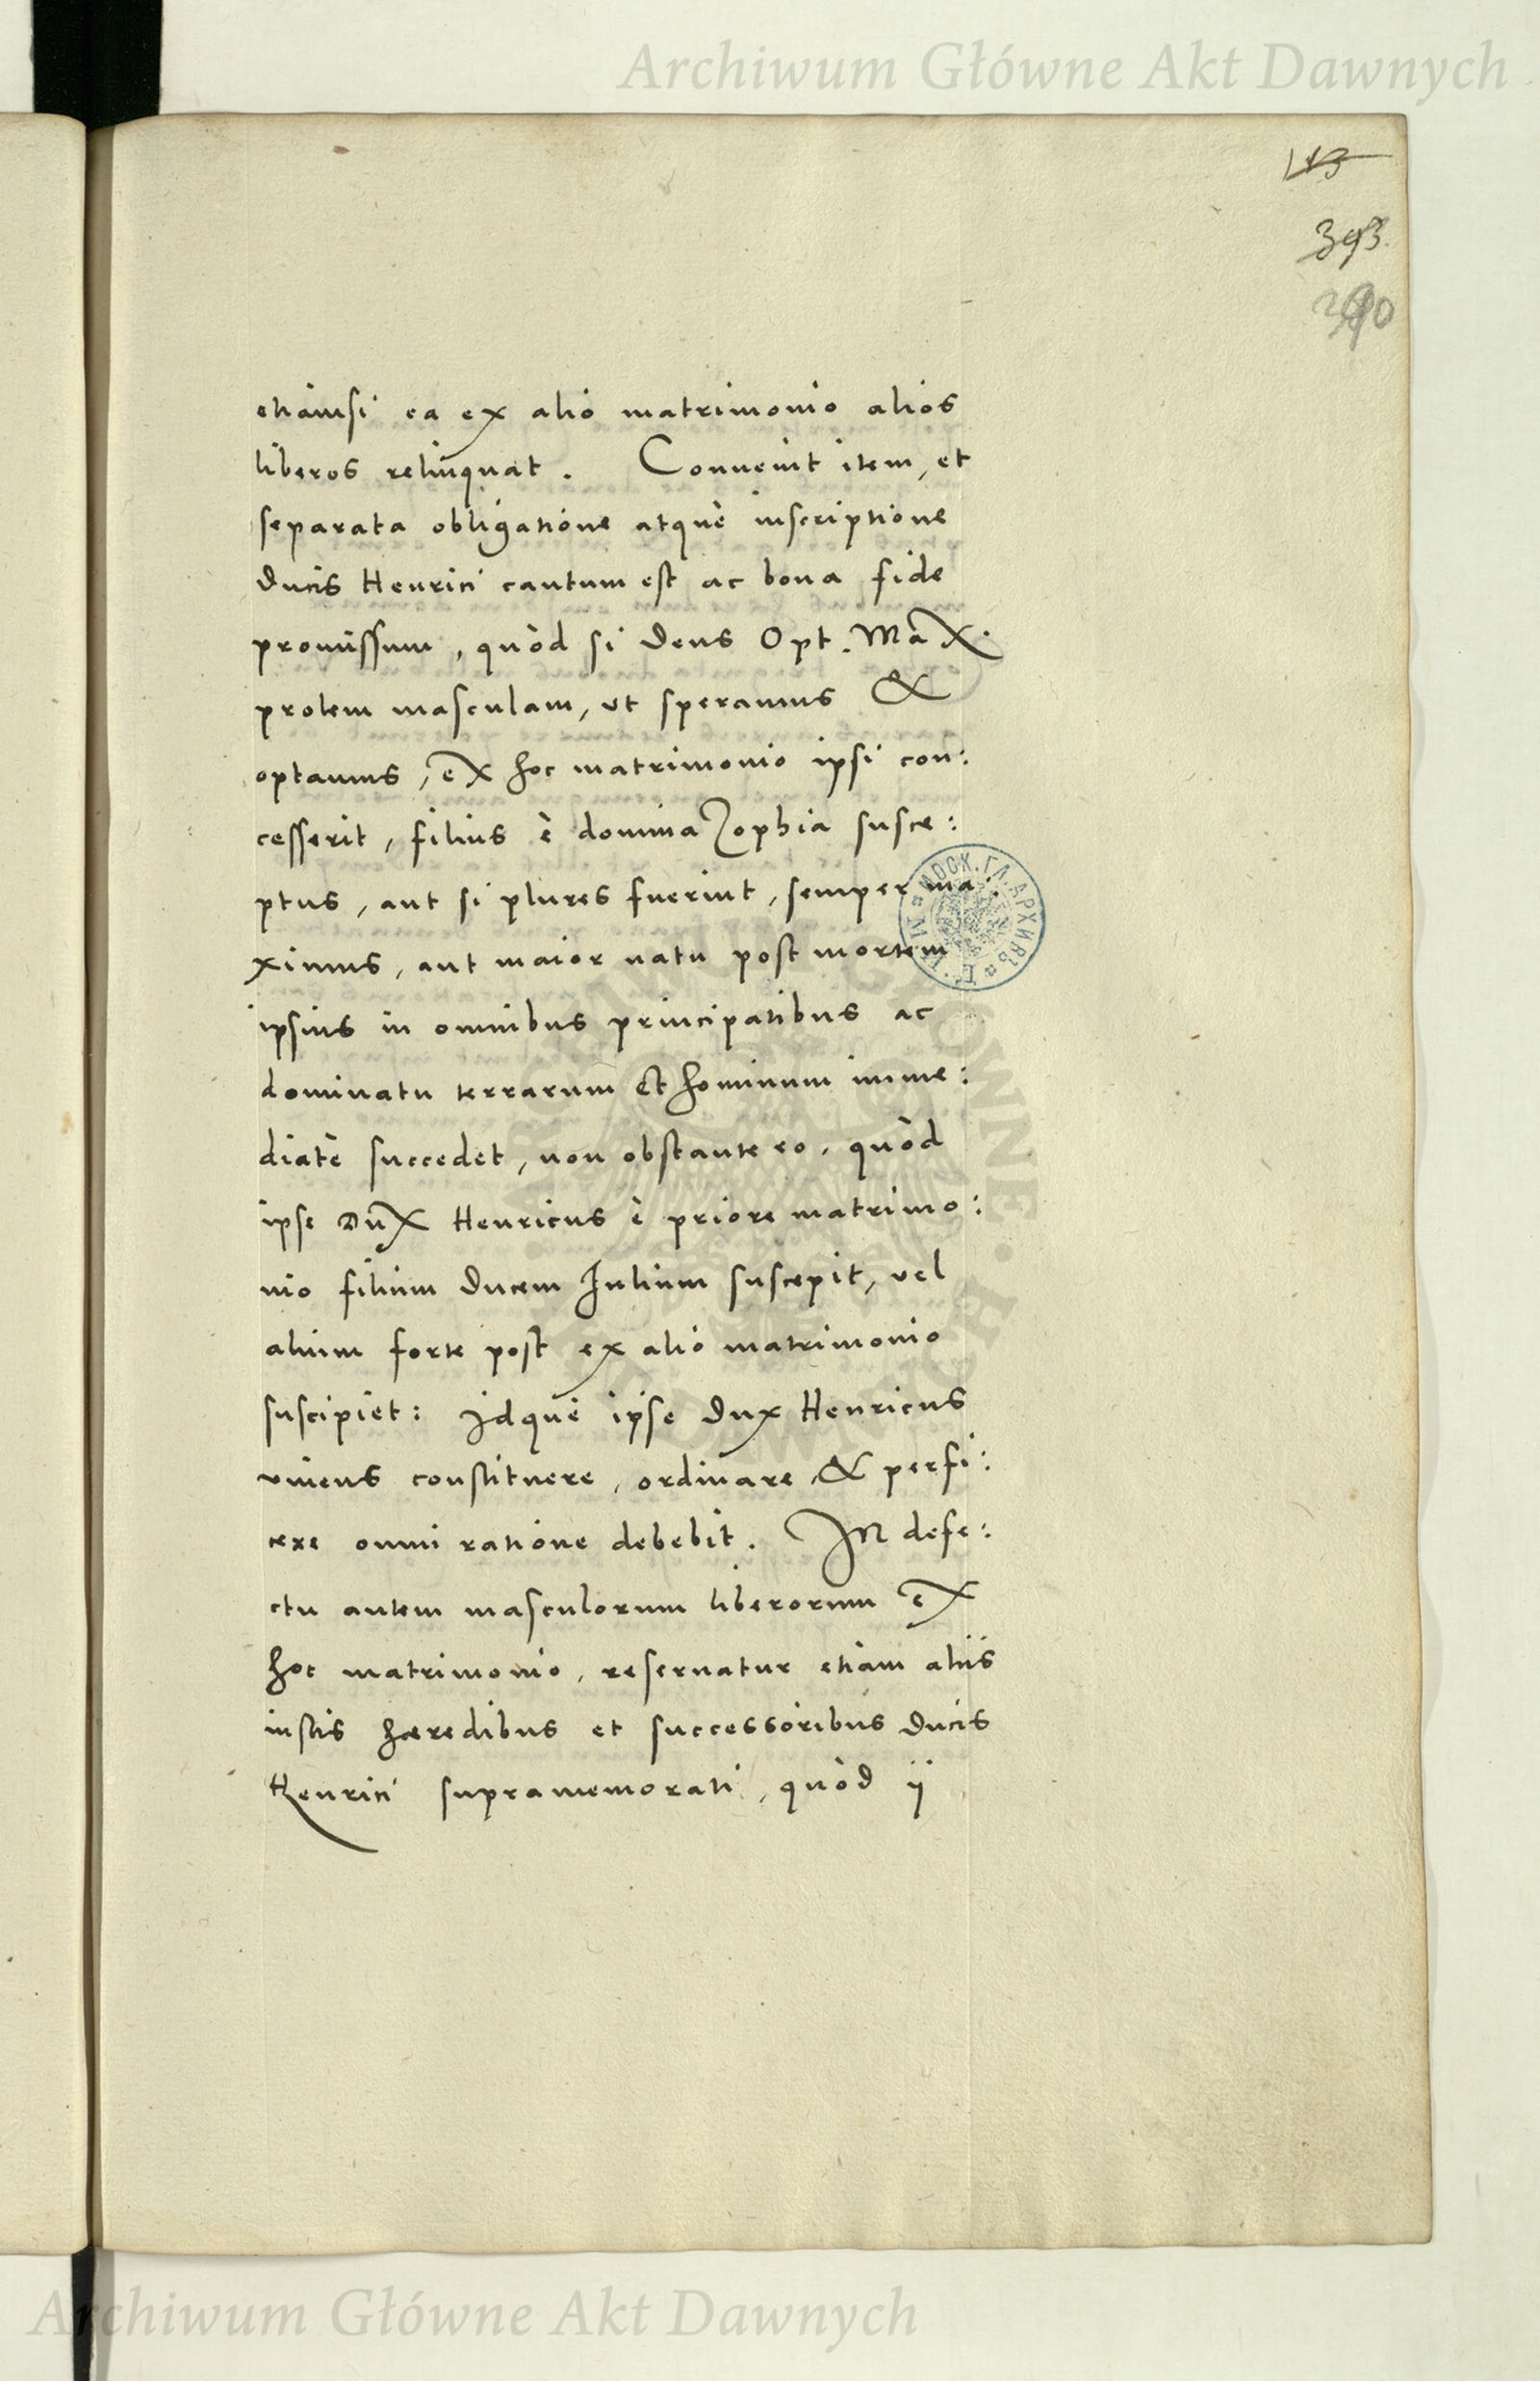 Archiwum Główne Akt Dawnych
113
393.
390
etiamsi ea ex alio matrimonio alios
liberos relinquat. Conuenit item, et
separata obligatione atquè inscriptione
Ducis Henrici cautum est ac bona fide
promissum, quòd si Deus Opt. Max.
prolem masculam, ut speramus &
optamus, ex hoc matrimonio ipsi con:
cesserit, filius è domina Zophia susce:
ptus, aut si plures fuerint, semper ma:
ximus, aut maior natu post mortem
ipsius in omnibus principatibus ac
dominatu terrarum et hominum imme:
diatè succedet, non obstante eo, quòd
ipse Dux Henricus è priore matrimo:
nio filium Ducem Iulium suscepit, vel
alium forte post ex alio matrimonio
suscipiet: Idquè ipse Dux Henricus
viuens constituere, ordinare, & perfi:
cere omni ratione debebit. In defe:
ctu autem masculorum liberorum ex
hoc matrimonio, reseruatur etiam aliis
iustis hæredibus et successoribus Ducis
Henrici supramemorati, quòd ij
МОСК. ГЛ. АРХИВЪ
Archiwum Główne Akt Dawnych